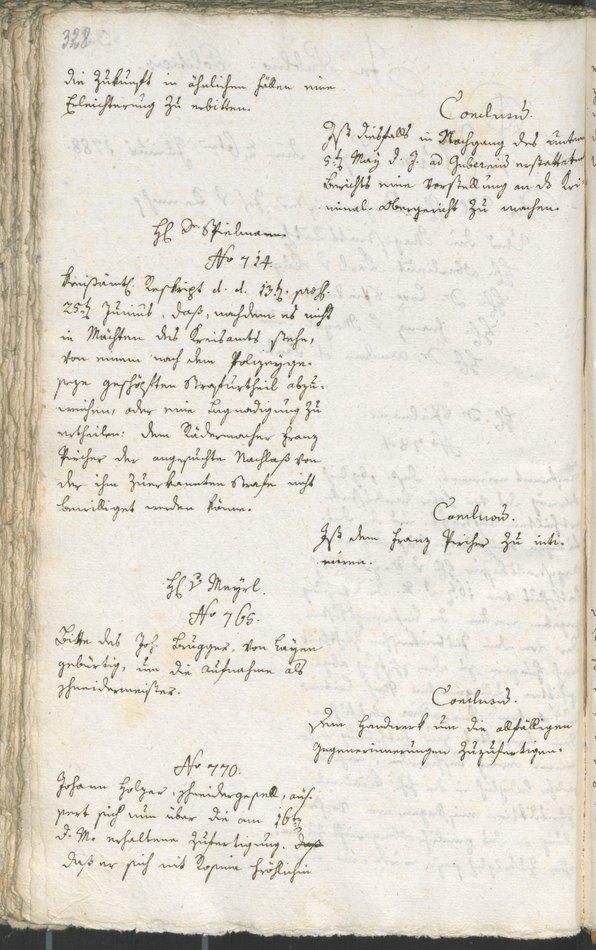 328
die Zukunft in ähnlichen Fällen eine
Erleichterung zu erbitten.
Conclusū.
Ist diesfalls in Nachgang des unterm
5ten May d. J. ad Guberniū erstatteten
Berichts eine Vorstellung an das Kri-
minal-Obergericht zu machen.
HE Dr Spielmann
No 714
Kreisämtl. Reskript d. d. 13ten, präs.
25ten Junius, daß, nachdem es nicht
in Mächten des Kreisamts stehe,
von einem nach dem Polizeyge-
seze geschöpften Strafurtheil abzu-
weichen, oder eine Begnadigung zu
ertheilen: dem Rädermacher Franz
Pircher der angesuchte Nachlaß von
der ihm zuerkannten Strafe nicht
bewilliget werden könne.
Conclusū.
Ist dem Franz Pircher zu inti-
miren.
HE v Meyrl.
No 765.
Bitte des Joh. Brugger, von Layen
gebürtig, um die Aufnahme als
Schneidermeister.
Conclusū.
Dem Handwerk um die allfälligen
Gegenerinnerungen zuzufertigen.
No 770.
Johann Holzer, Schneidergesell, äus-
sert sich nun über die am 16ten
d. M. erhaltene Zufertigung. daß
daß er sich mit Rosina Fröhlichin